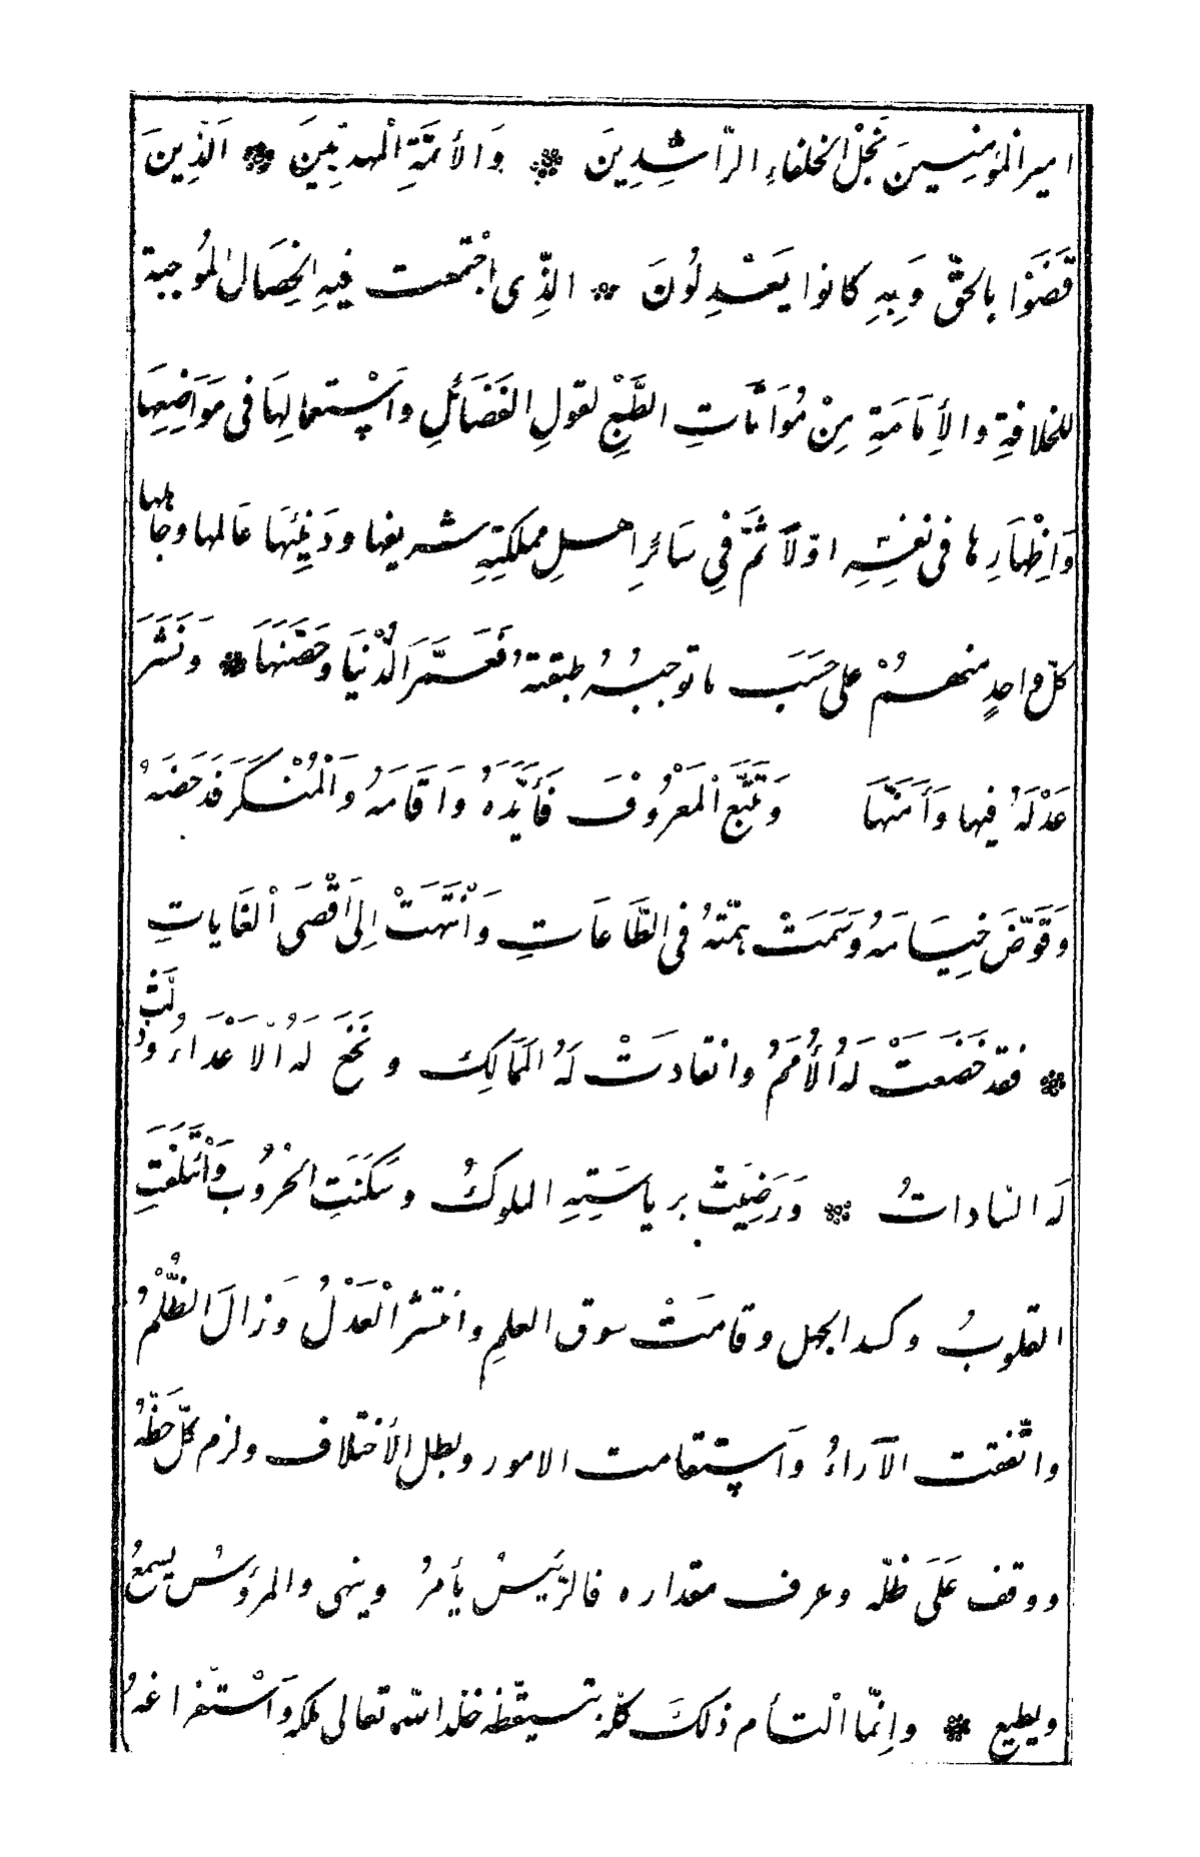 امير المؤمنينَ نَجْلِ الخلفاءِ الرّاشِدِينَ ❊ وَالأئمّةِ المهديّينَ ❊ الَّذِينَ
قَضَوْا بالحقّ وَبِهِ كانوا يَعْدِلُونَ ❊ الذِّى اجْتمعت فيهِ الخِصَالُ المُوجبة
للخلافةِ والإِمَامَةِ مِنْ مُوَاتَاتِ الطَّبْعِ لقولِ الفَضَائلِ وَاسْتعمالِهَا فى مَوَاضِعِهَا
وَاِظْهَارِها فى نفسِهِ اوّلاً ثمَّ فِي سَائرِ اهلِ مملكتِهِ شريفها ودَنِيئهَا عَالمها وجاهلها
كلّ واحدٍ منهمُ علىحَسَبَ ماتوجبُهُ طبقتهُ فَعَمَّرَ الدُّنْيَا وحَصَّنَهَا ❊ وَنَشَرَ
عَدْلَهُ فيها وَأَمَّنَهَا وَتَتَبَّعَ الْمَعْرُوْفَ فَأَيَّدَهُ وَاَقَامَهُ وَالْمُنْكَرَ فَدَحَضَهُ
وَقَوَّضَ خِيَامَهُ وَسَمَتْ هِمّتهُ فى الطَّاعَاتِ وَانْتَهَتْ اِلَى اَقْصَى الْغَاياتِ
❊ فقد خَضَعَتْ لَهُ الأُمَمُ وانقادتْ لَهُ المَمَالِكِ و نَخَعَ لَهُ الاَعْدَاءُ وذلّتْ
لَه السّاداتُ ❊ وَرَضِيَتْ برياسَتِهِ الملوكُ وسَكَنَتِ الحُرُوبُ وَائْتَلَفَتِ
القلوبُ وكسد الجهل وقامَتْ سوق العلمِ وانتشر الْعَدْلُ وَزالَ الظُّلْمُ
واتّفقت الآراءُ وَاستقامت الامور وبطل الأختلاف ولزم كلّ حَظّهُ
ووقف عَلَى ظلّه وعرف مقداره فالرّئيسُ يأمرُ وينهى والمرؤسُ يسمعُ
ويطيع ❊ واِنّما الْتأم ذلكَ كلّه بتيقّظه خلّد الله تعالى ملكه وَاسْتفراغهُ